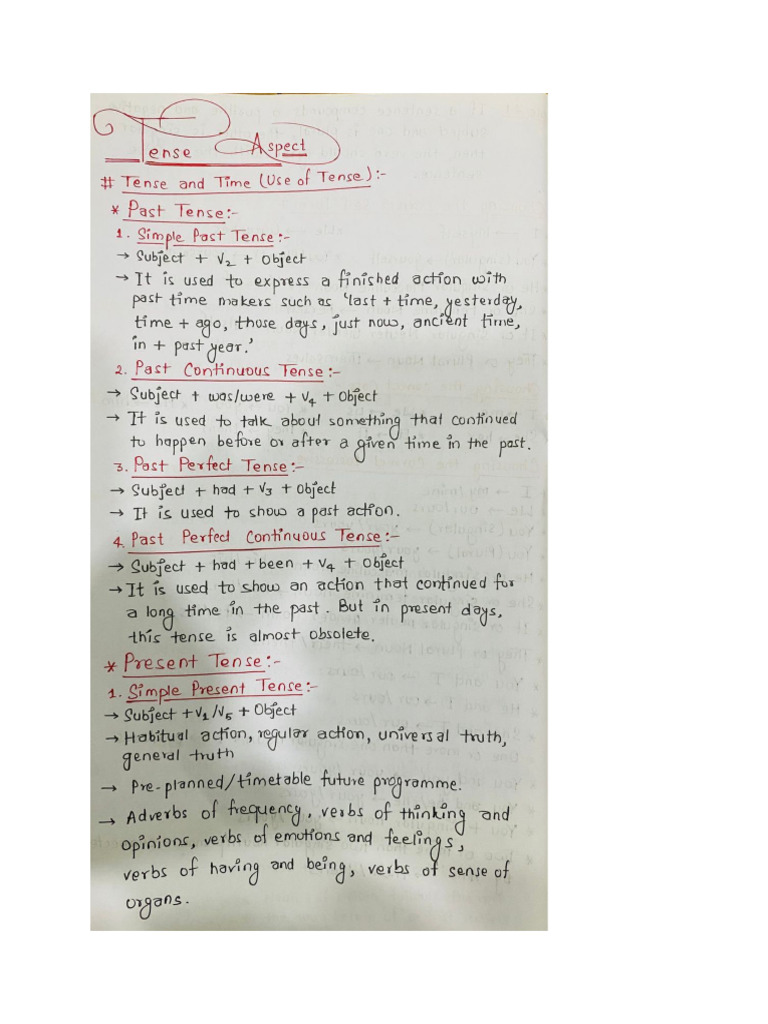 Tense Aspect
# Tense and Time (Use of Tense):-
* Past Tense:-
1. Simple Past Tense:-
→ Subject + V₂ + Object
→ It is used to express a finished action with
past time makers such as 'last + time, yesterday,
time + ago, those days, just now, ancient time,
in + past year.'
2. Past Continuous Tense:-
→ Subject + was/were + V₄ + Object
→ It is used to talk about something that continued
to happen before or after a given time in the past.
3. Past Perfect Tense:-
→ Subject + had + V₃ + Object
→ It is used to show a past action.
4. Past Perfect Continuous Tense:-
→ Subject + had + been + V₄ + Object
→ It is used to show an action that continued for
a long time in the past. But in present days,
this tense is almost obsolete.
* Present Tense:-
1. Simple Present Tense:-
→ Subject + V₁/V₅ + Object
→ Habitual action, regular action, universal truth,
general truth
→ Pre-planned/timetable future programme.
→ Adverbs of frequency, verbs of thinking and
opinions, verbs of emotions and feelings,
verbs of having and being, verbs of sense of
organs.